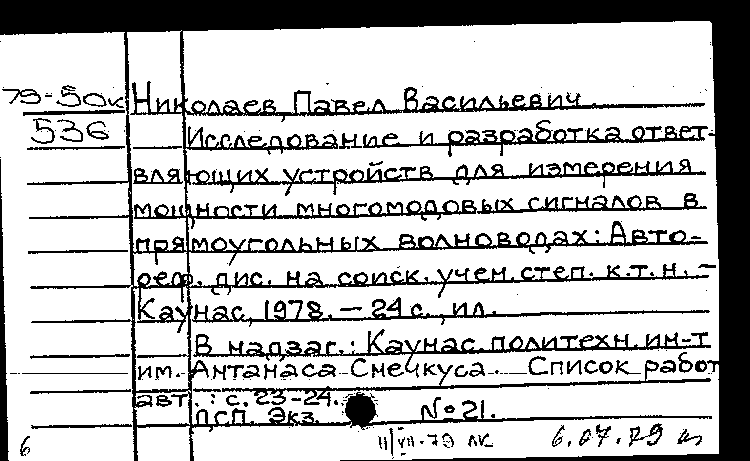 79-50к Николаев, Павел Васильевич.
536 Исследование и разработка ответ-
вляющих устройств для измерения
мощности многомодовых сигналов в
прямоугольных волноводах: Авто-
реф. дис. на соиск. учен. степ. к.т.н. –
Каунас, 1978. – 24 с., ил.
В надзаг.: Каунас. политехн. ин-т
им. Антанаса Снечкуса. Список работ
авт.: с. 23-24.
ДСП. Экз. №21.
6 11/VII-79 ЛК 6.07.79